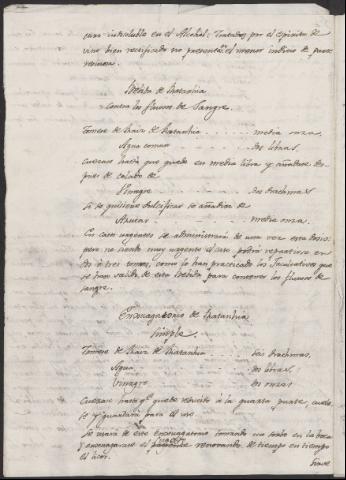 curo insoluble en el Alcohol: Tratados por el espiritu de
vino bien rectificado no presenta el menor indicio de parte
resinosa.
Bebida de Ratanhia
contra los fluxos de Sangre.
Tomese de Raiz de Ratanhia . . . . . media onza.
Agua comun . . . . . dos libras.
Cuezase hasta que quede en media libra y añadase des-
pues de colado de
Vinagre . . . . . dos drachmas.
Si se quisiere dulcificar se añadira de
Azucar . . . . . media onza.
En casos urgentes se administrará de una vez esta dosis;
pero no siendo muy urgente el caso podrá repartirse en
dos ó tres tomas, como lo han practicado los Facultativos que
se han valido de esta bebida para contener los fluxos de
sangre.
Enxuagatorio de Ratanhia
Simple.
Tomese de Raiz de Ratanhia . . . . . seis drachmas.
Agua . . . . . dos libras.
Vinagre . . . . . dos onzas
Cuezase hasta q.e quede reducido á la quarta parte, cuele-
se y guardese para el uso
Se usará de este enxuagatorio tomando un sorbo en la boca
y enxuagarse el renovando de tiempo en tiempo
el licor.